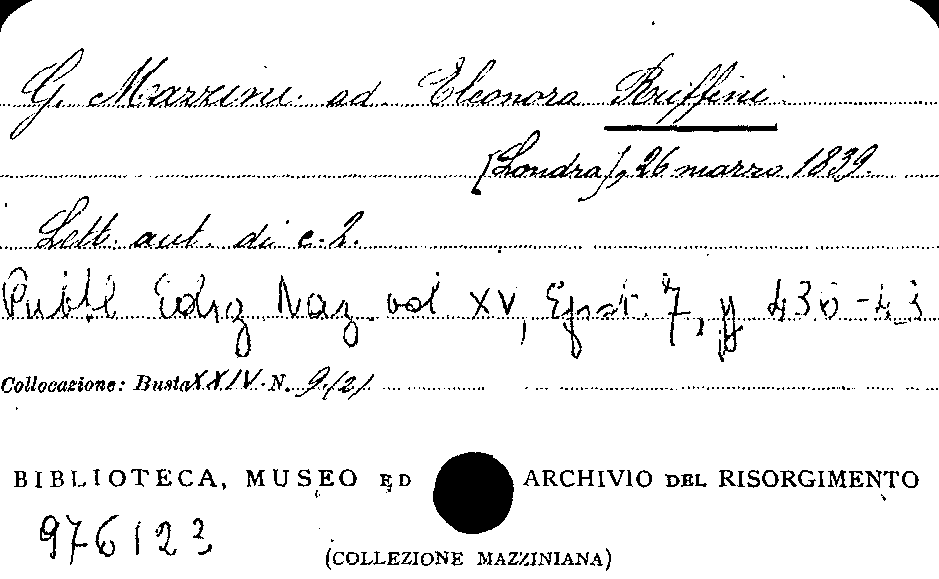 G. Mazzini ad Eleonora Ruffini
[Londra], 26 marzo 1839.
Lett. aut. di c. 2.
Pubbl Ediz Naz. vol XV, Epist. 7, pp 430-43
Collocazione: Busta XXIV. N. 9.(2)
BIBLIOTECA, MUSEO ED ARCHIVIO DEL RISORGIMENTO
976123
(COLLEZIONE MAZZINIANA)